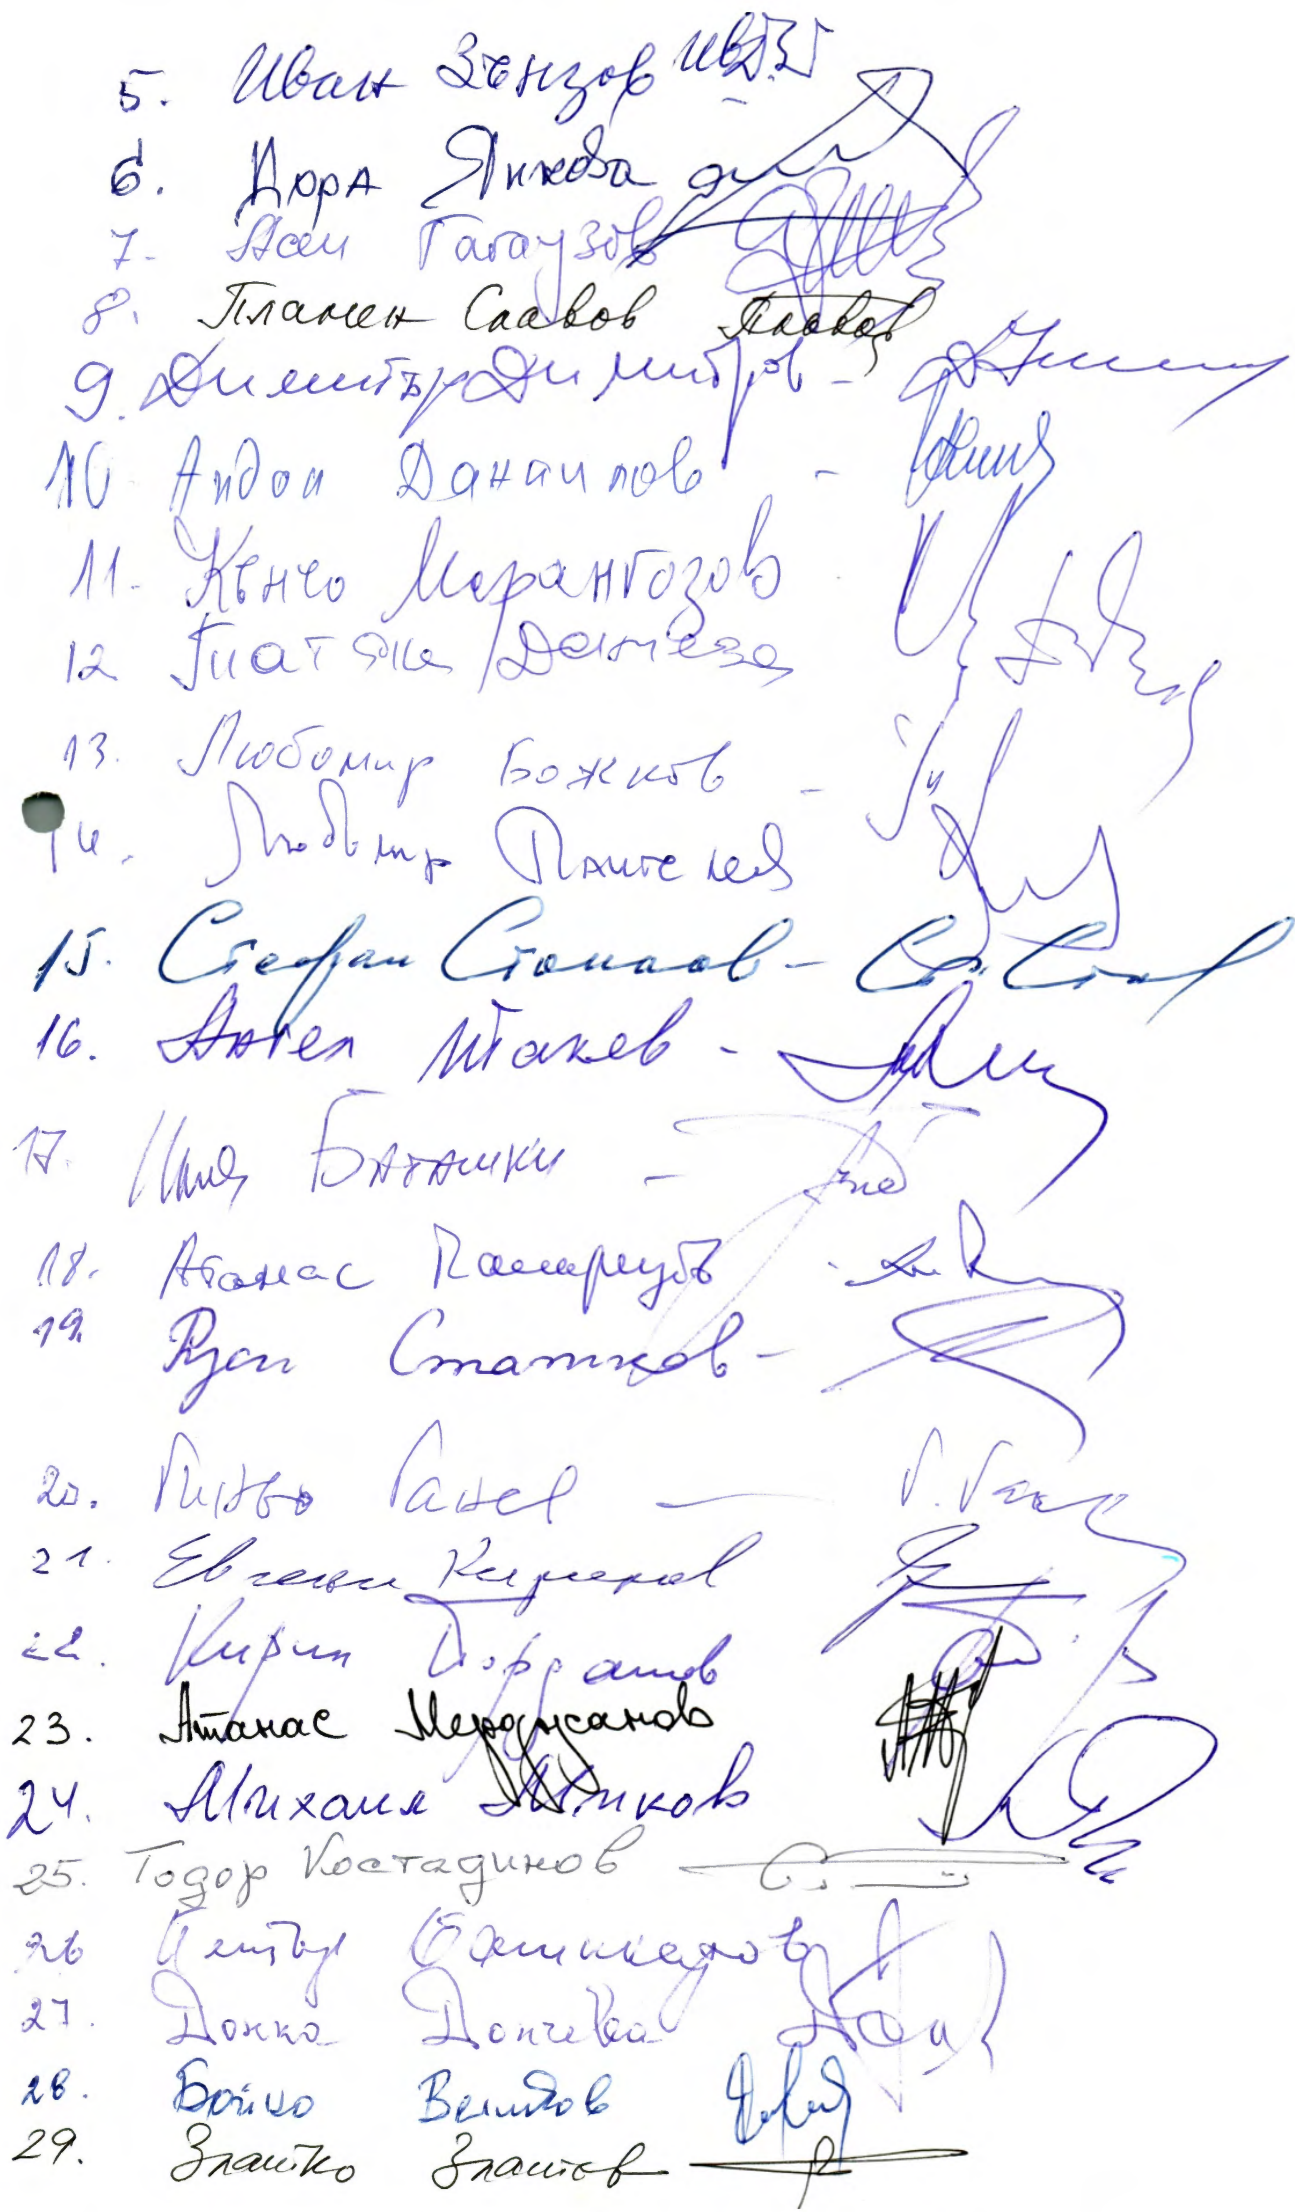 5. Иван Зънзов
6. Дора Янкова
7. Асен Гагаузов
8. Пламен Славов
9. Димитър Димитров -
10. Андон Данаилов -
11. Кънчо Марангозов
12 Татяна Дончева
13. Любомир Божков -
14. Любомир Пантелеев
15. Стефан Стоилов -
16. Ангел Такев -
17. Илия Баташки -
18. Атанас
19. Руси Статков -
20. Гиньо Ганев —
21. Евгени Кирилов
22. Кирил Йорданов
23. Атанас Мерджанов
24. Михаил Миков
25. Тодор Костадинов
26 Петър
27. Донка Дончева
28. Бойко Великов
29. Златко Златев